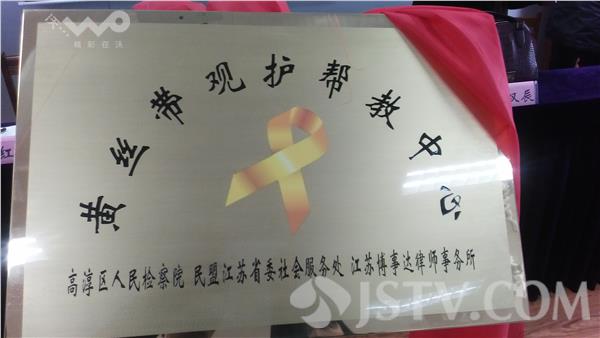 精彩在沃
黄丝带观护帮教中心
高淳区人民检察院 民盟江苏省委社会服务处 江苏博事达律师事务所
红
辰
JSTV.COM